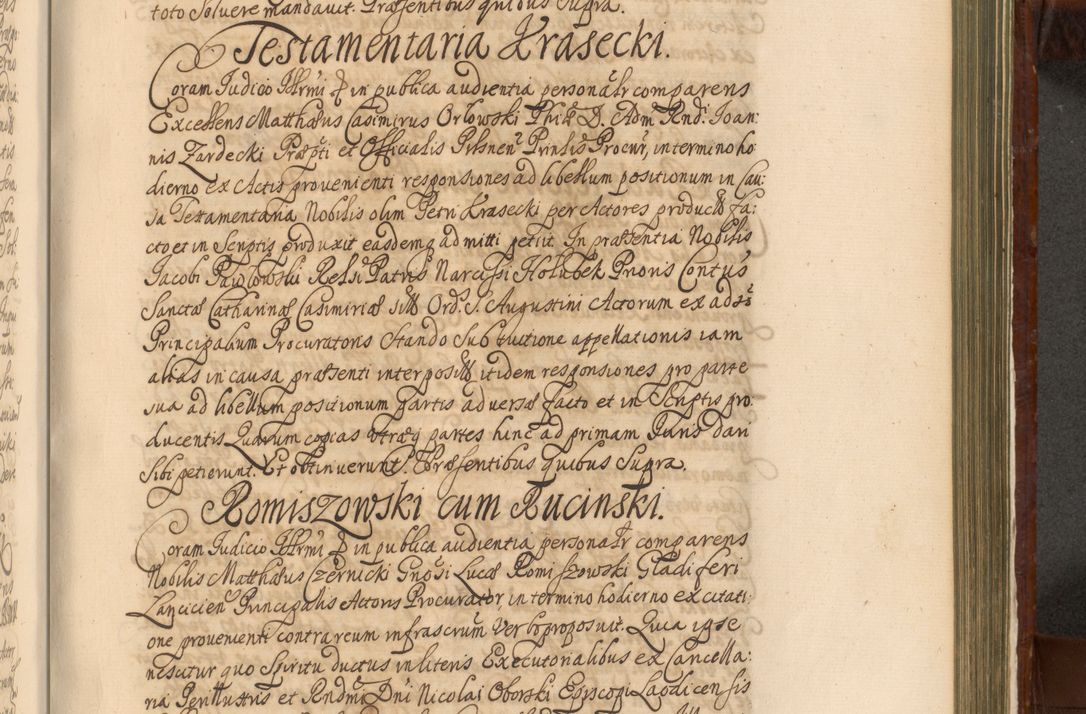 toto Solvere mandavit. Præsentibus quibus Supra.
Testamentaria Krasecki.
Coram Judicio Illrmi D in publica audientia personalr comparens
Excellens Matthæus Casimirus Orłowski Phiæ D. Adm. Rndi Joan:
nis Zardecki Præpti et Officialis Pilsnen Prinlis Procur, in termino ho
dierno ex Actis provenienti responsiones ad libellum positionum in Cau:
sa Testamentaria Nobilis olim Petri Krasecki per Actores product fa:
cto et in Scriptis produxit easdemq admitti petiit. In præsentia Nobilis
Jacobi Pawłowski Relsi Patris Narcissi Hołubek Prioris Contus
Sanctæ Catharinæ Casimiriæ sitt Ord. S. Augustini Actorum ex adso
Principalium Procuratoris Stando Sub tuitione appellationis iam
alias in causa præsenti interpositt itidem responsiones pro parte
sua ad libellum positionum partis adversæ facto et in Scriptis pro:
ducentis Quarum copias utraq partes hinc ad primam Juris Dari
Sibi petierunt. Et obtinuerunt. Præsentibus quibus Supra.
Romiszowski cum Rucinski.
Coram Judicio Illrmi D in publica audientia personalr comparens
Nobilis Matthæus Czernicki Gnosi Lucæ Romiszowski Gladiferi
Lancicien Principalis Actoris Procurator, in termino hodierno ex citati:
one provenienti contra reum infrascrum Verbo proposuit. Quia ipse
nescitur quo Spiritu ductus in literis Executorialibus ex Cancella:
ria Perillustris et Rndmi Dni Nicolai Oborski Episcopi Laodicensis